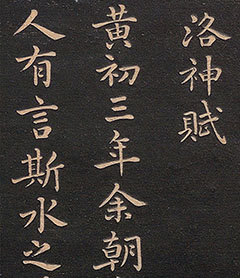 洛神賦
黃初三年余朝
人有言斯水之